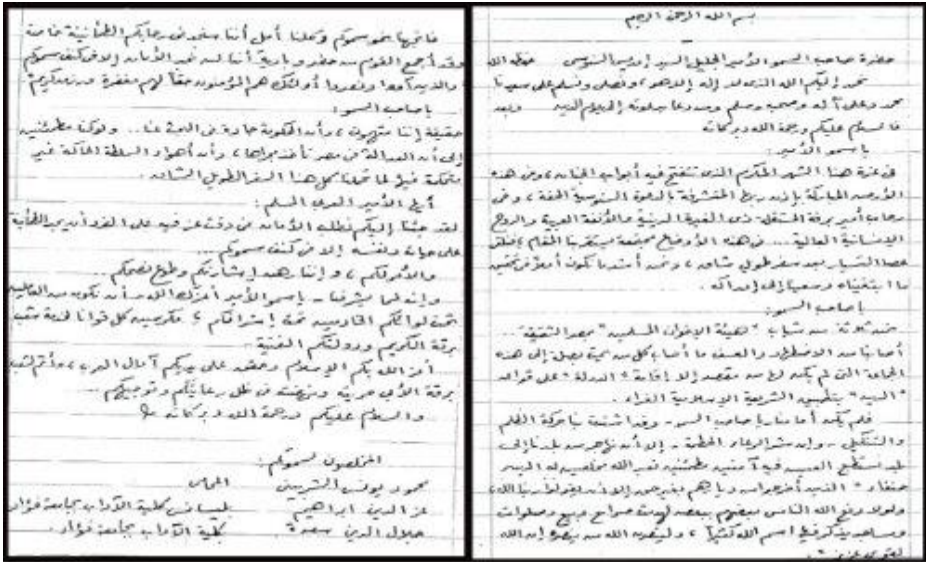 بسم الله الرحمن الرحيم
حضرة صاحب السمو الأمير الجليل السيد إدريس السنوسي حفظه الله
نحمد إليكم الله الذى لا إله إلا هو، ونصلى ونسلم على سيدنا
محمد وعلى آله وصحبه وسلم ومن دعا بدعوته إلى يوم الدين وبعد
فالسلام عليكم ورحمة الله وبركاته
يا سمو الأمير:
فى غرة هذا الشهر المكرم الذى تتفتح فيه أبواب الجنان، وفى هذه
الأرض المباركة بإذن ربها المتشرفة بالدعوة السنوسية الحقة، وفى
رحاب أمير برقة المستقلة ذى الغيرة الدينية والأنفة العربية والروح
الإنسانية العالية ... فى هذه الأوضاع مجتمعة يستقر بنا المقام، فنلقى
عصا التسيار بعد سفر طويل شاق، ونحن أشد ما نكون أملا فى تحقيق
ما ابتغيناه وسعينا إلى إدراكه.
يا صاحب السمو:
نحن ثلاثة من شباب "هيئة الإخوان المسلمين" بمصر الشقيقة ...
أصابنا من الاضطهاد والعسف ما أصاب كل من يمت بصلة إلى هذه
الجماعة التى لم يكن لها من مقصد إلا إقامة "الدولة" على قواعد
"الدين" بتطبيق الشريعة الإسلامية الغراء.
فلم يكن أمامنا يا صاحب السمو - وقد اشتدت بنا حركة الظلم
والتنكيل - وإن شر الرعاء الحطمة - إلا أن نهاجر من بلدنا إلى
بلد نستطيع العيش فيه آمنين مطمئنين نعبد الله مخلصين له الدين
حنفاء "الذين أخرجوا من ديارهم بغير حق إلا أن يقولوا ربنا الله،
ولولا دفع الله الناس بعضهم ببعض لهدمت صوامع وبيع وصلوات
ومساجد يذكر فيها اسم الله كثيرا، ولينصرن الله من ينصره إن الله
لقوى عزيز".
فاخترنا نحو سموكم وكلنا أمل أننا سنجد فى رحابكم الطمأنينة خاصة
وقد أجمع القوم من حضر وبادية أننا لن نجد الأمان إلا فى كنف سموكم
والذين آووا ونصروا أولئك هم المؤمنون حقا لهم مغفرة ورزق كريم"
يا صاحب السمو:
حقيقة إننا متهمون، وأن الحكومة جادة فى البحث عنا.. ولو كنا مطمئنين
إلى أن العدالة فى مصر تأخذ مجراها، وأن أهواء السلطة الحاكمة غير
متحكمة فيها لما تحملنا كل هذا السفر الطويل الشاق.
أيها الأمير العربى المسلم:
لقد جئنا إليكم نطلب الأمان فى وقت عز فيه على الفرد أن يجد الطمأنينة
على حياته ونفسه إلا فى كنف سموكم..
والأمر لكم، وإننا رهن إشارتكم وطوع نصحكم.
وإنه لما يشرفنا - يا سمو الأمير أعزك الله - أن نكون من العاملين
تحت لوائكم الخادمين تحت إشرافكم، مكرسين كل قوانا لخدمة شعب
برقة الكريم ودولتكم الفتية.
أعز الله بكم الإسلام وحقق على يديكم آمال العرب، وأتم لشعب
برقة الأبى حريته ونهضته فى ظل رعايتكم وتوجيهكم..
والسلام عليكم ورحمة الله وبركاته
المخلصون لسموكم:
محمود يونس الشربينى المحامى
عز الدين ابراهيم بليسانس كلية الآداب بجامعة فؤاد
جلال الدين سعدة كلية الآداب بجامعة فؤاد.